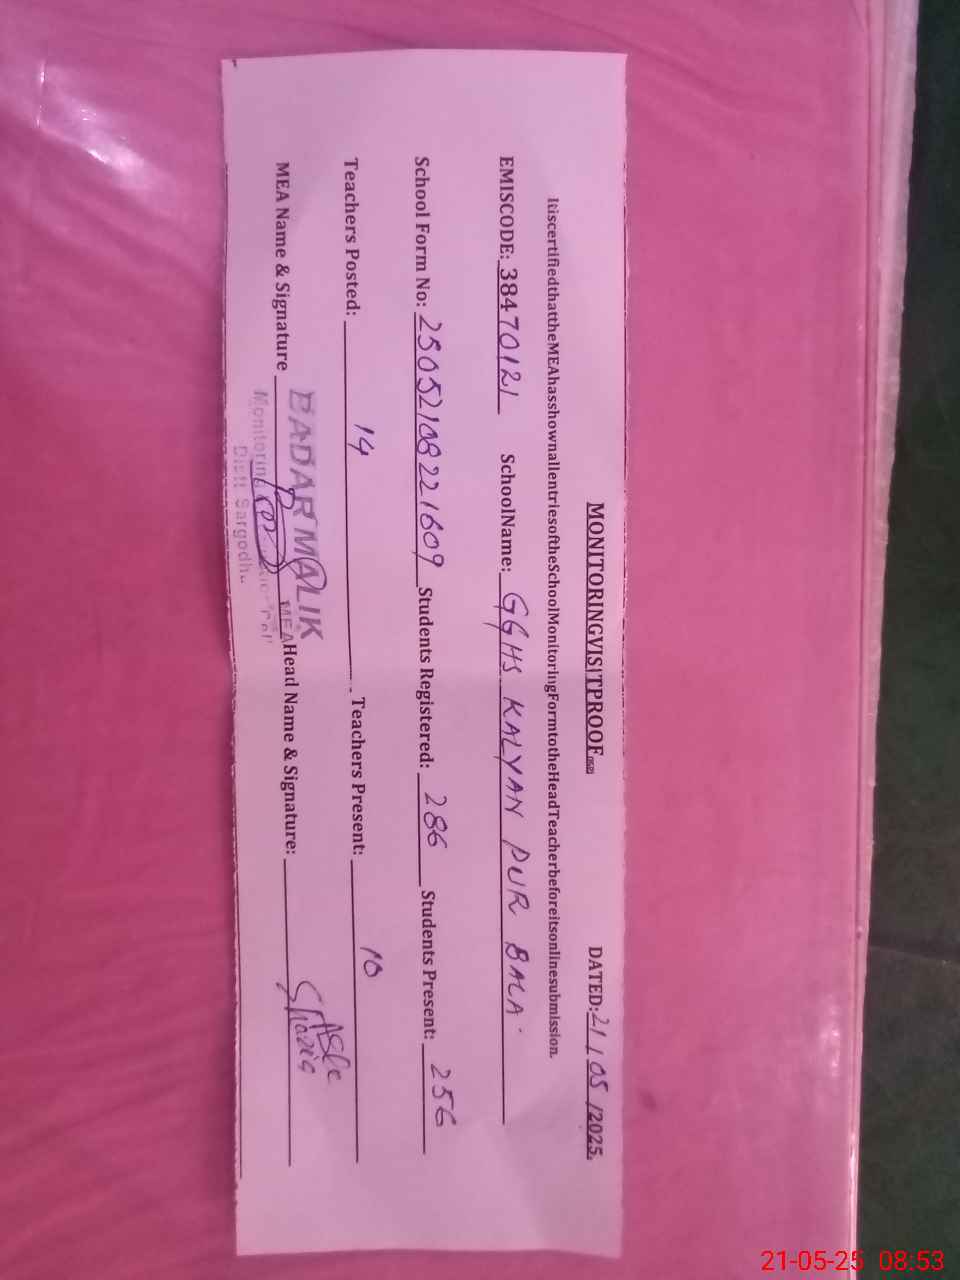 MONITORINGVISITPROOF DATED:21/05/2025.
ItiscertifiedthattheMEAhasshownallentriesoftheSchoolMonitoringFormtotheHeadTeacherbeforeitsonlinesubmission.
EMISCODE: 38470121 SchoolName: GGHS KALYAN PUR BALA.
School Form No: 25052108221609 Students Registered: 286 Students Present: 256
Teachers Posted: 14 Teachers Present: 10
MEA Name & Signature Head Name & Signature: Shazia
BADAR MALIK
MEA
Monitoring
Distt Sargodha
21-05-25 08:53